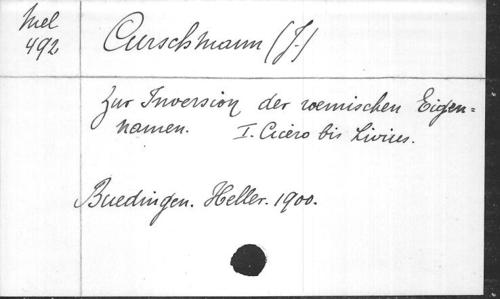 Mel
492
Curschmann (J.)
Zur Inversion der roemischen Eigen=
namen. I. Cicero bis Livius.
Buedingen. Heller. 1900.